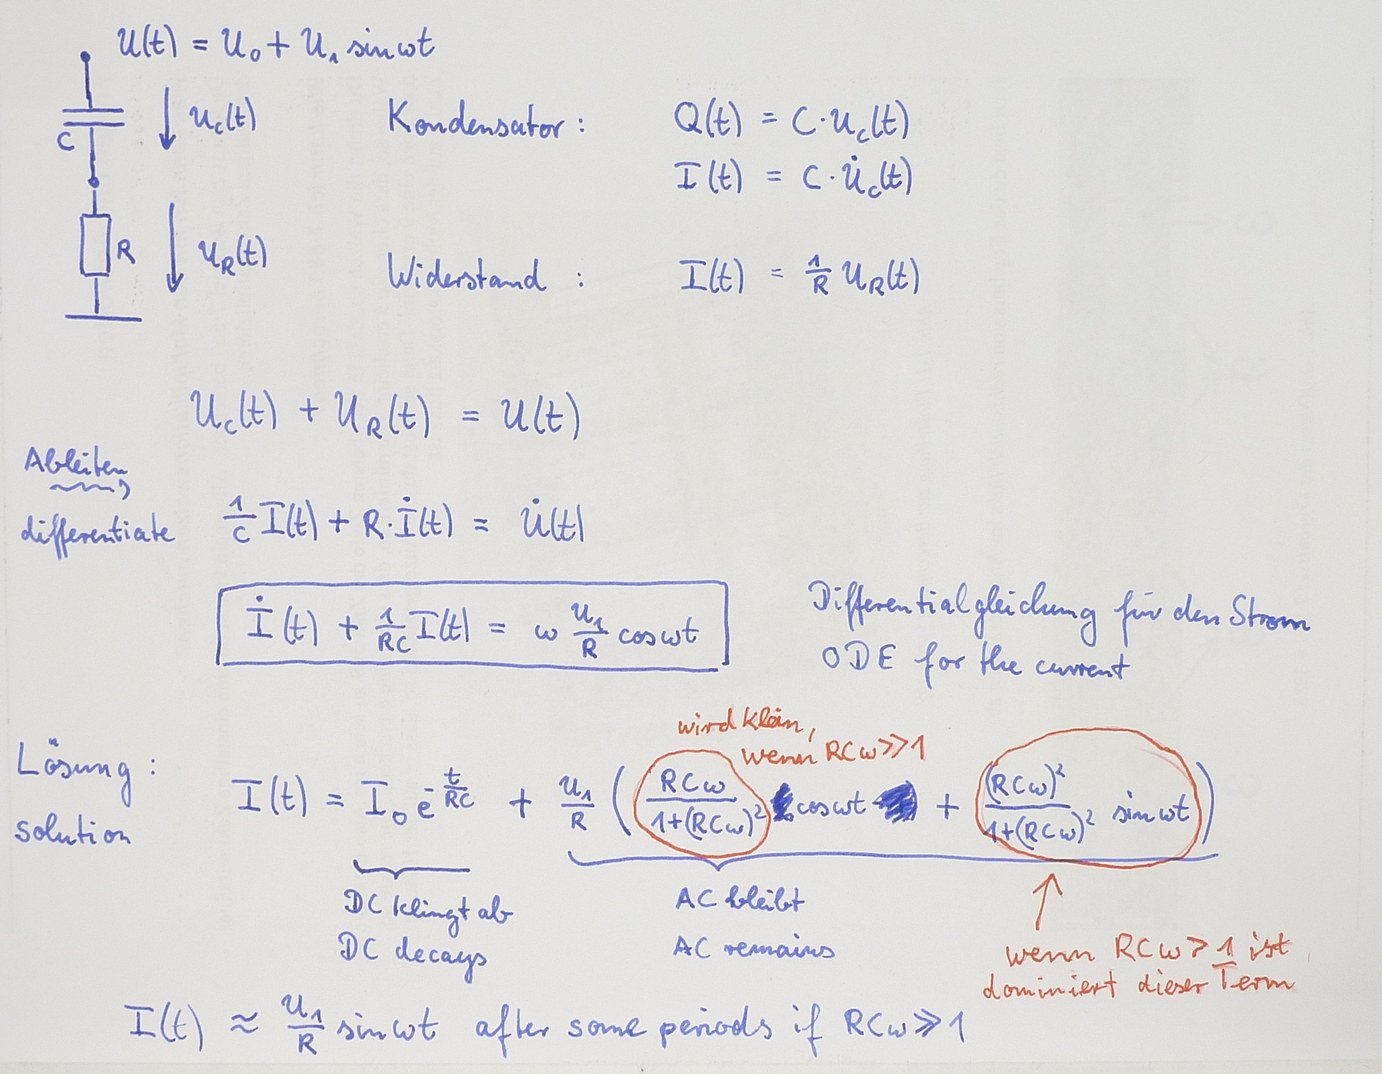 U(t) = U₀ + U₁ sin ωt
C
U_C(t)
Kondensator : Q(t) = C · U_C(t)
I(t) = C · U̇_C(t)
R
U_R(t)
Widerstand : I(t) = 1/R U_R(t)
U_C(t) + U_R(t) = U(t)
Ableiten
differentiate
1/C I(t) + R · İ(t) = U̇(t)
İ(t) + 1/RC I(t) = ω U₁/R cos ωt
Differentialgleichung für den Strom
ODE for the current
wird klein,
wenn RCω ≫ 1
Lösung :
solution
I(t) = I₀ e^(-t/RC) + U₁/R ( RCω/(1+(RCω)²) cos ωt + (RCω)²/(1+(RCω)²) sin ωt )
DC klingt ab
DC decays
AC bleibt
AC remains
wenn RCω > 1 ist
dominiert dieser Term
I(t) ≈ U₁/R sin ωt after some periods if RCω ≫ 1